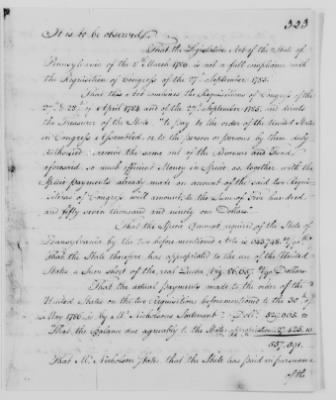 323
It is to be observed.
That the Legislative Act of the State of
Pennsylvania of the 8th March 1786 is not a full compliance with
the Requisition of Congress of the 27th September 1785.
That this Act combines the Requisitions of Congress of the
27th & 28th of April 1784 and of the 27th September 1785, and directs
the Treasurer of the State "to pay to the order of the United States
in Congress Assembled, or to the person or persons by them duly
Authorised to receive the same out of the Revenues and Funds
aforesaid, so much efficient Money in Specie as together with the
Specie payments already made on account of the said two Requi-
sitions of Congress will amount to the Sum of Five hundred
and fifty seven thousand and ninety one Dollars."
That the Specie Amount required of the State of
Pennsylvania by the two before mentioned Acts is
That the State therefore has appropriated to the use of the United
States a Sum short of the real Quota by 86,057 Dollars.
That the actual payments made to the order of the
United States on the two Requisitions beforementioned to the 30th of
May 1786 is by Mr. Nicholsons Statement Dolrs. 529,065.
That the Balance due agreeably to the States appropriation is
557,091.
That Mr. Nicholson states that the State has paid in pursuance
of the